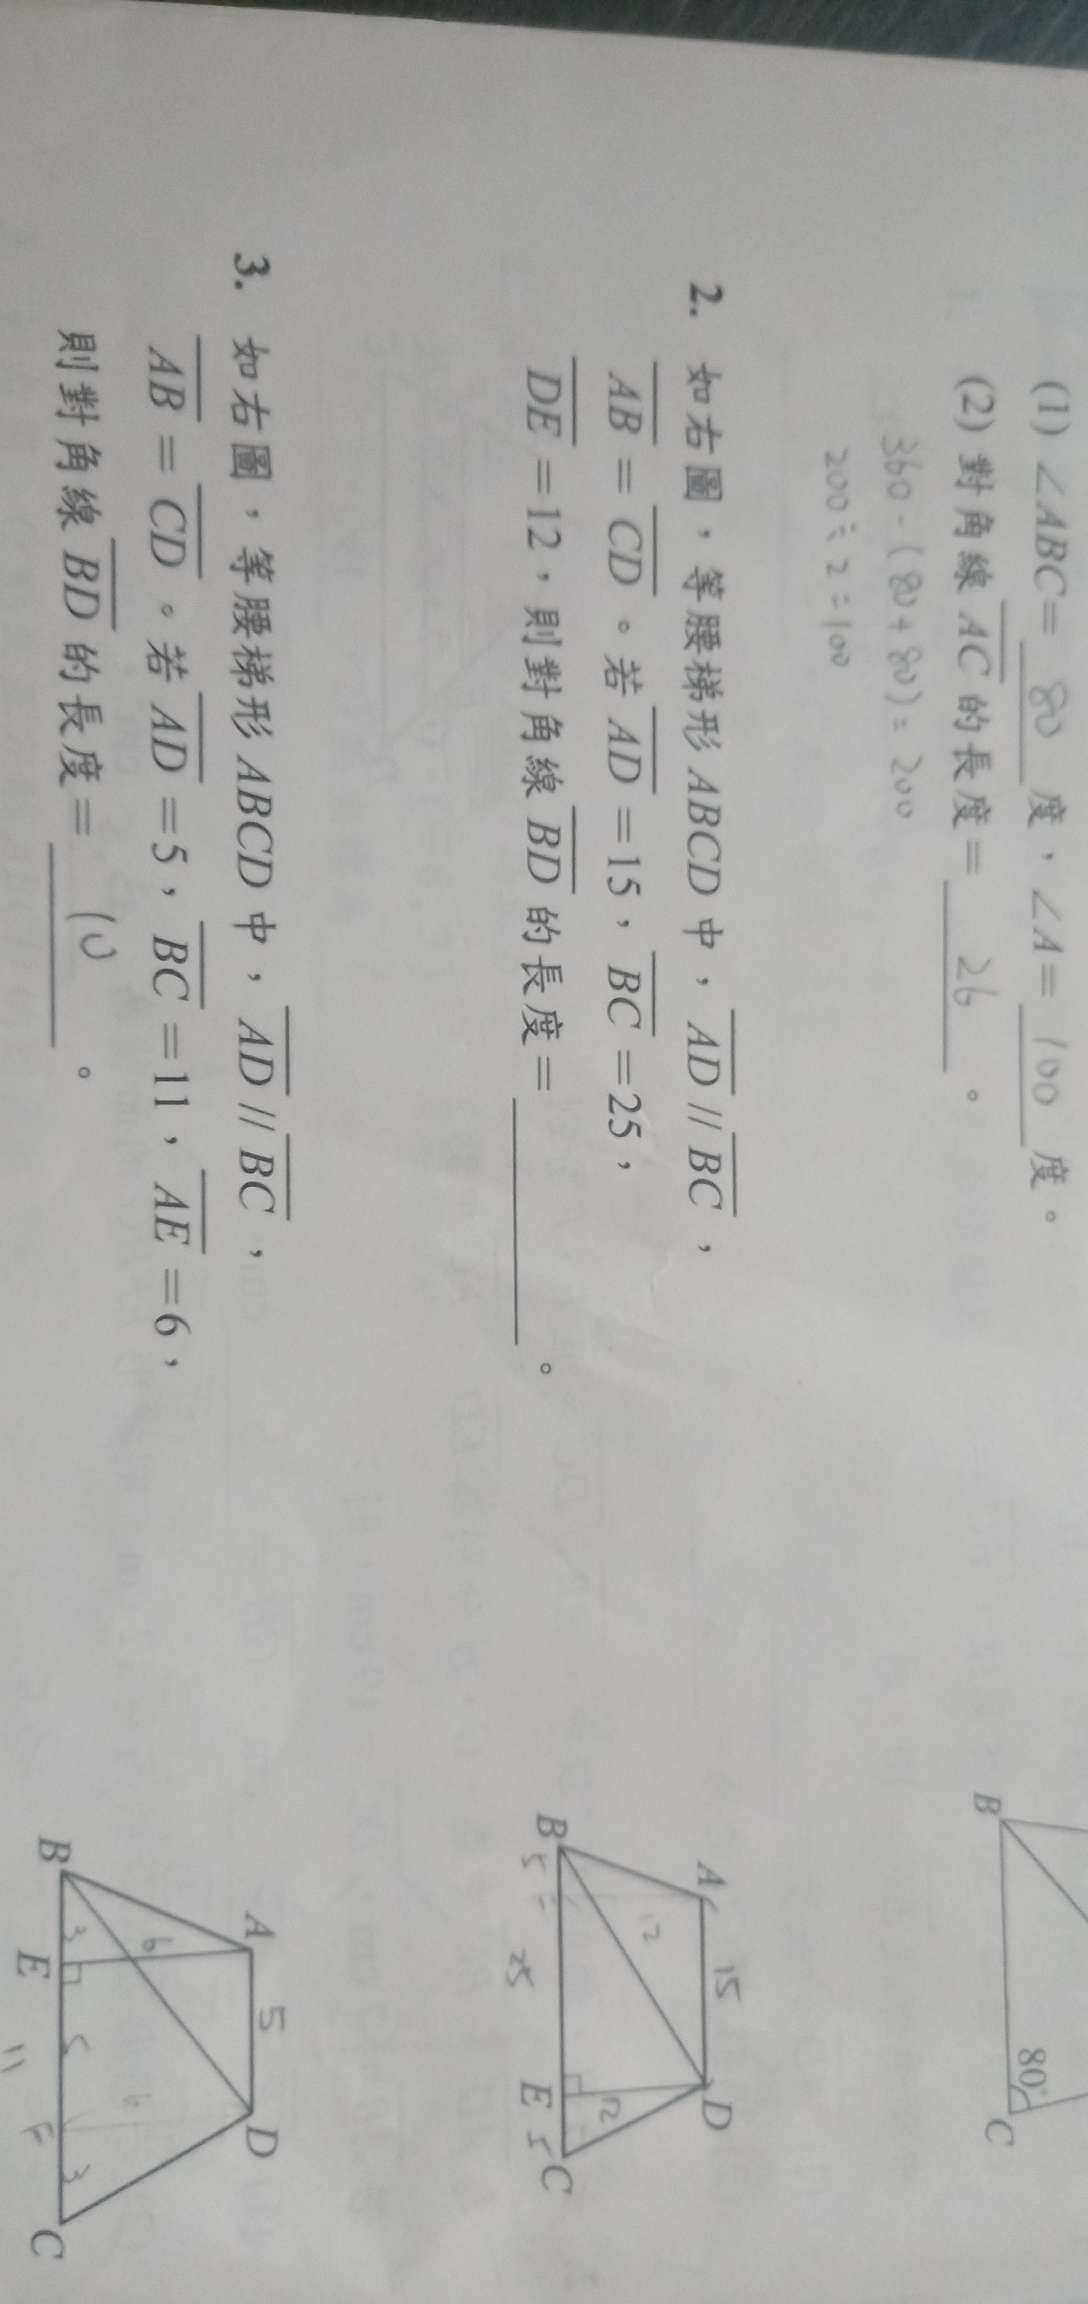 (1) ∠ABC= 80 度，∠A= 100 度。
(2) 對角線 AC 的長度= 26 。
360-(80+80)=200
200÷2=100
B
80°
C
2. 如右圖，等腰梯形 ABCD 中，AD // BC，
AB = CD。若 AD =15，BC =25，
DE =12，則對角線 BD 的長度= 。
A 15 D
12 12
B 5 E 5 C
25
3. 如右圖，等腰梯形 ABCD 中，AD // BC，
AB = CD。若 AD =5，BC =11，AE =6，
則對角線 BD 的長度= 10 。
A 5 D
6 6
B 3 E 5 F 3 C
11